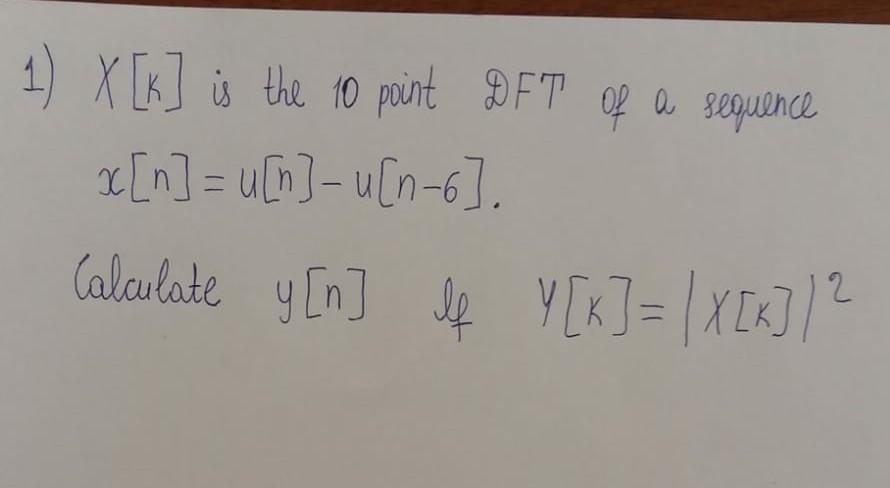 1) X[k] is the 10 point DFT of a sequence
x[n] = u[n] - u[n-6].
Calculate y[n] If Y[k] = |X[k]|²